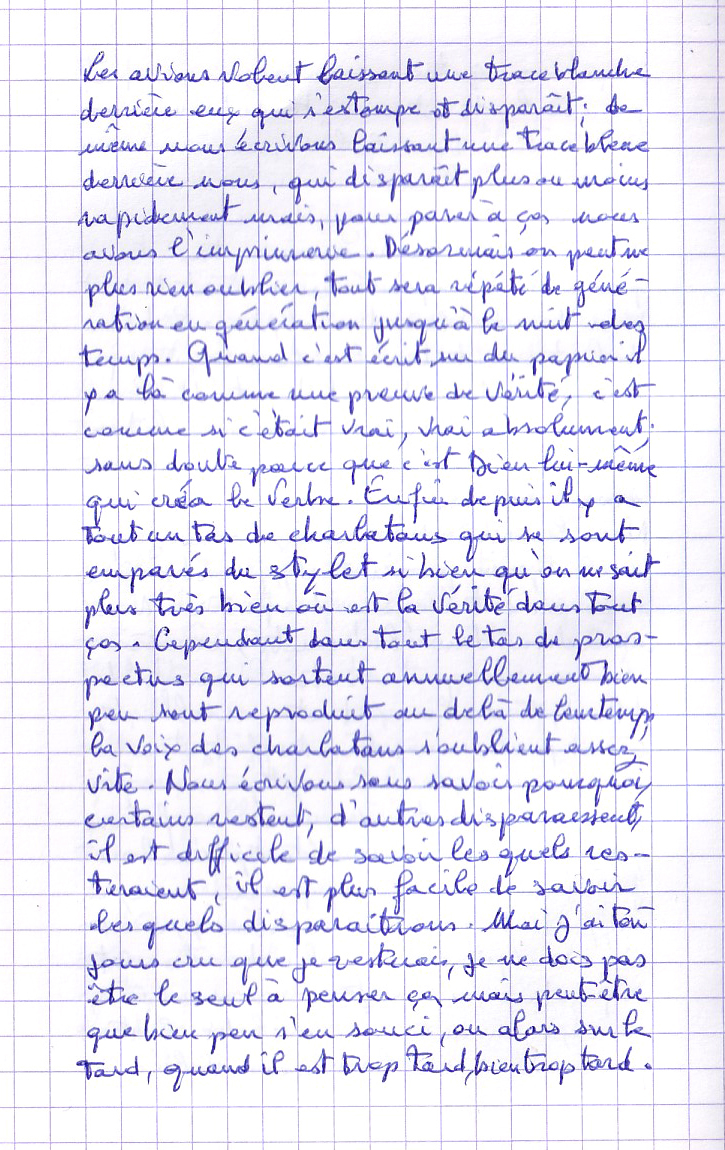 Les avions volent laissant une trace blanche
derrière eux qui s'estompe et disparaît; de
même nous écrivons laissant une trace bleue
derrière nous, qui disparaît plus ou moins
rapidement mais, pour parer à ça nous
avons l'imprimerie. Désormais on peut ne
plus rien oublier, tout sera répété de géné-
ration en génération jusqu'à la nuit des
temps. Quand c'est écrit sur du papier il
y a là comme une preuve de vérité, c'est
comme si c'était vrai, vrai absolument,
sans doute parce que c'est Dieu lui-même
qui créa le Verbe. Enfin depuis il y a
tout un tas de charlatans qui se sont
emparés du stylet si bien qu'on ne sait
plus très bien où est la Vérité dans tout
ça. Cependant dans tout le tas de pros-
pectus qui sortent annuellement bien
peu sont reproduit au delà de leur temps,
la voix des charlatans s'oublient assez
vite. Nous écrivons sans savoir pourquoi,
certains restent, d'autres disparaessent,
il est difficile de savoir les quels res-
teraient, il est plus facile de savoir
les quels disparaitrons. Moi j'ai tou
jours cru que je resterais, je ne dois pas
être le seul à penser ça mais peut-être
que bien peu s'en souci, ou alors sur le
tard, quand il est trop tard, bien trop tard.